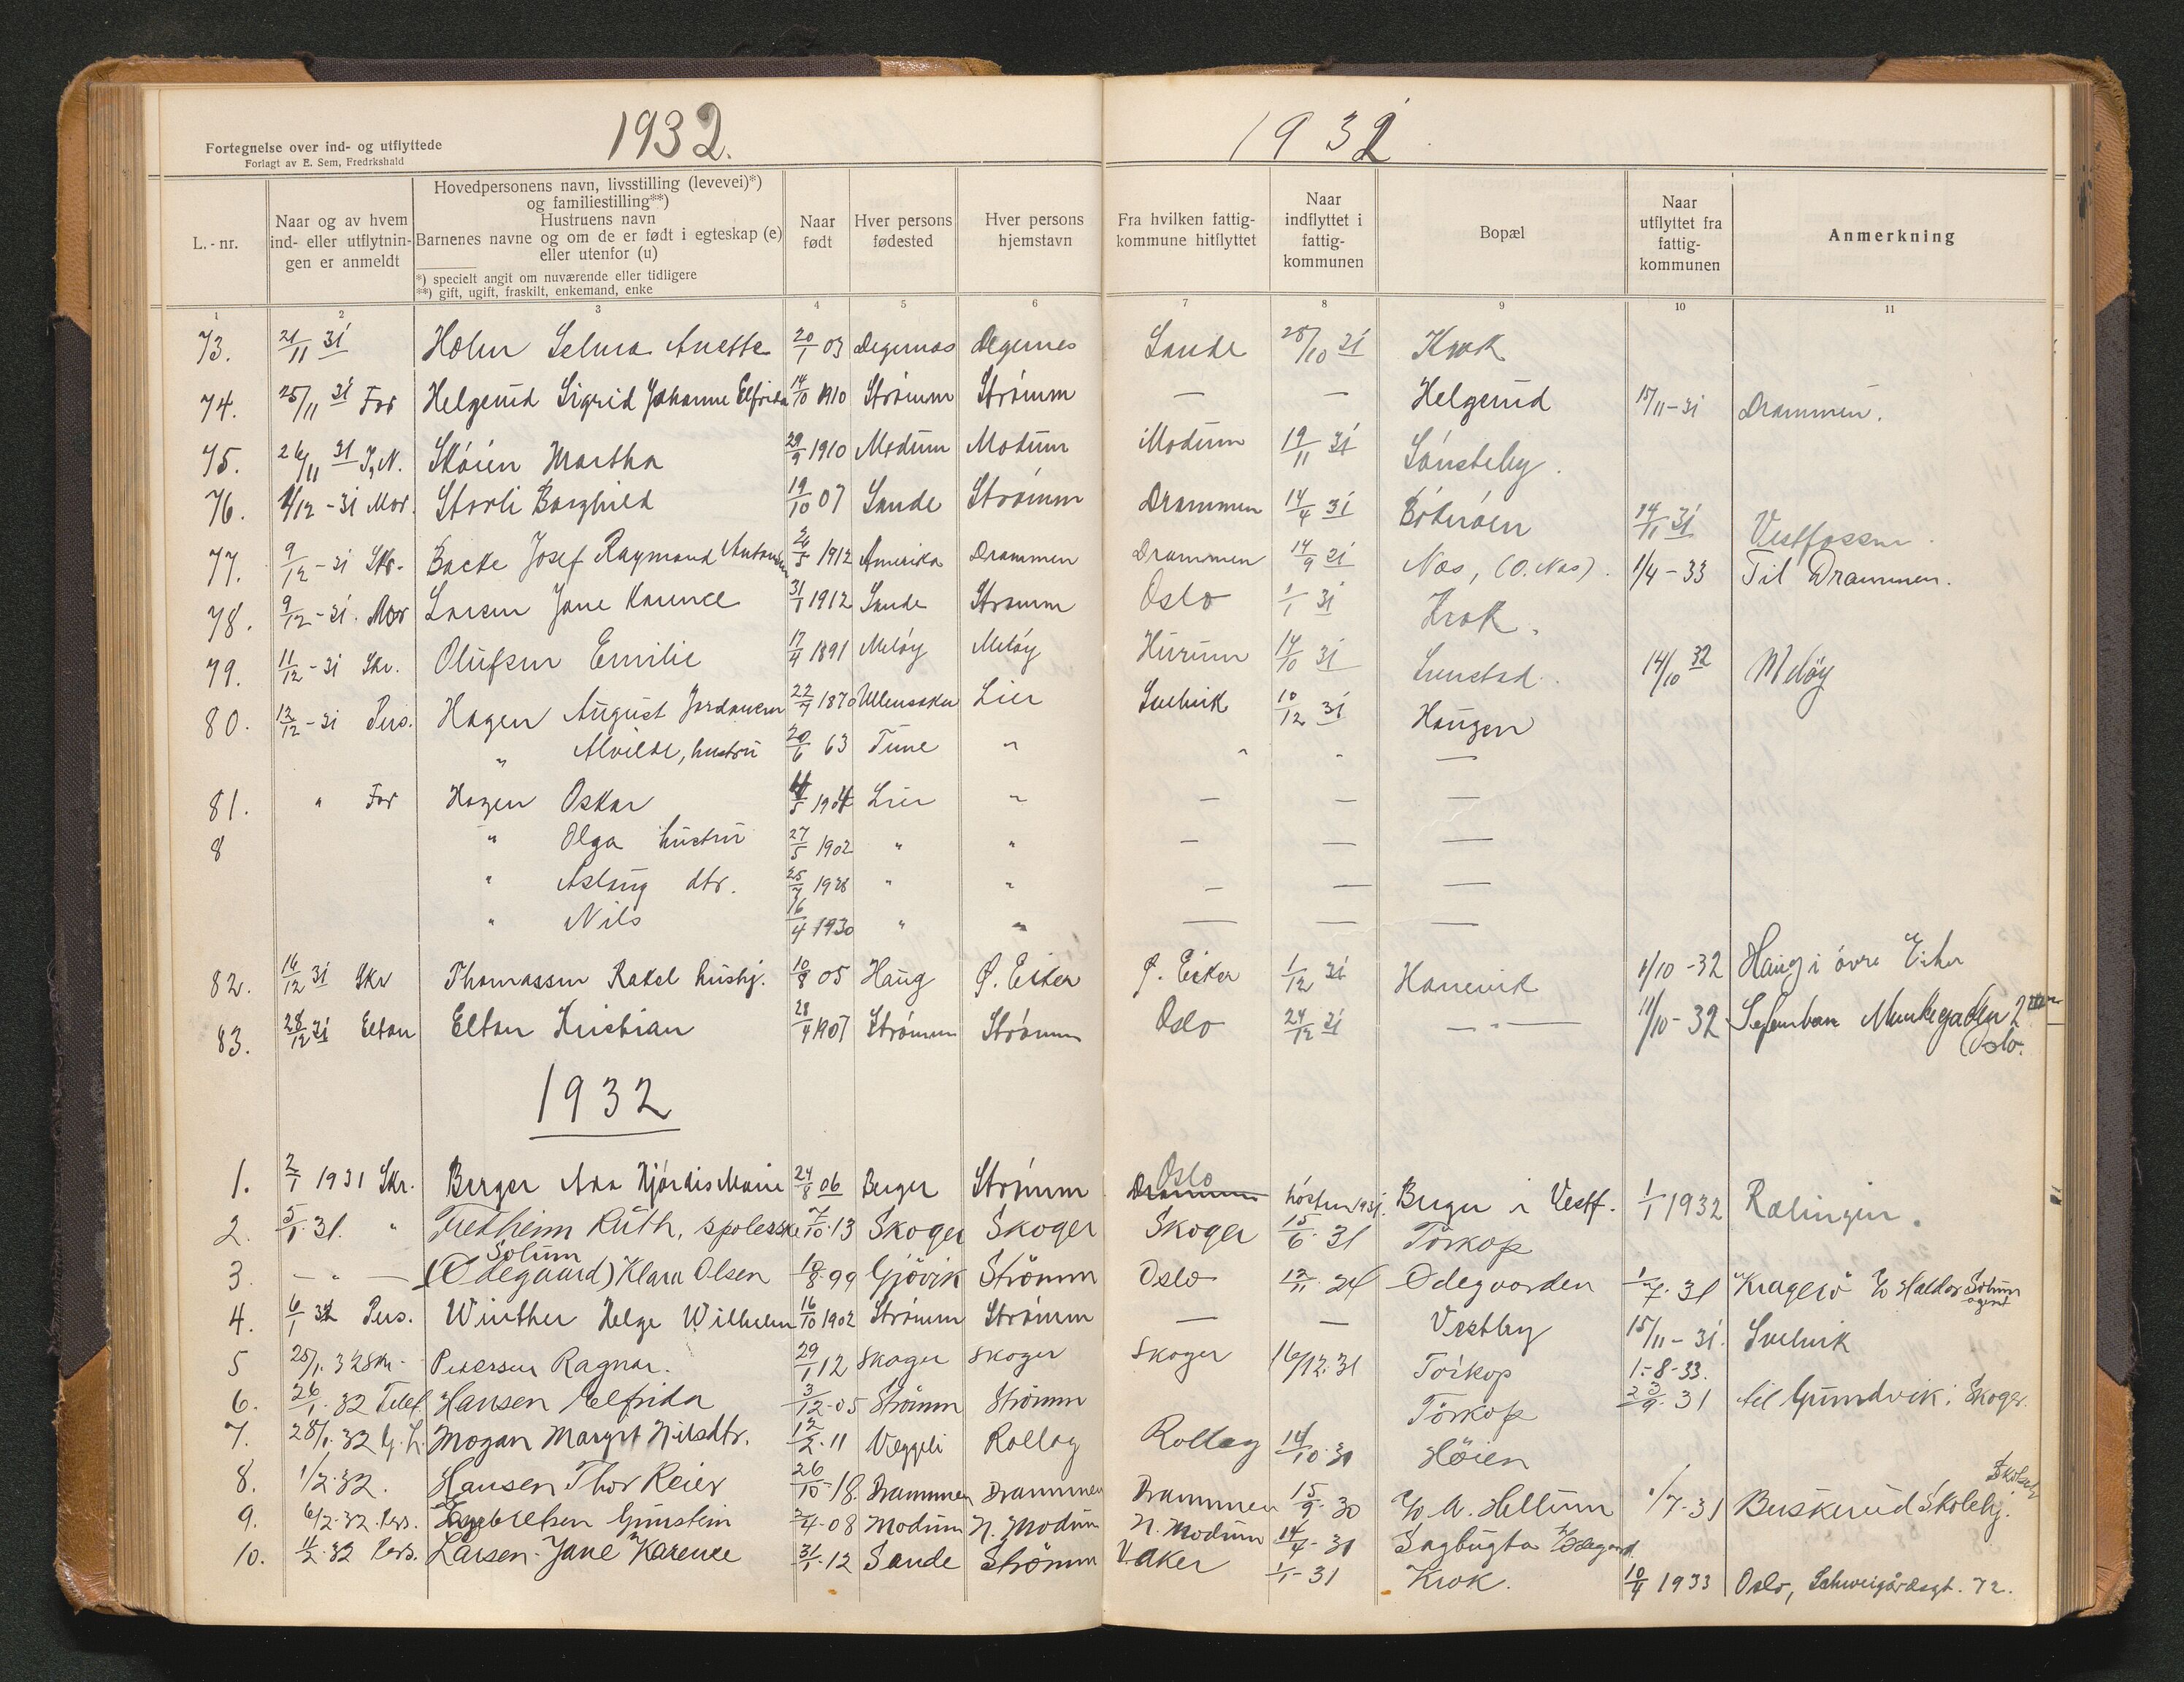 Fortegnelse over ind- og utflyttede
Forlagt av E. Sem, Fredrkshald
1932.
1932
L.-nr.
Naar og av hvem ind- eller utflytningen er anmeldt
Hovedpersonens navn, livsstilling (levevei)*)
og familiestilling**)
Hustruens navn
Barnenes navne og om de er født i egteskap (e)
eller utenfor (u)
*) specielt angit om nuværende eller tidligere
**) gift, ugift, fraskilt, enkemand, enke
Naar født
Hver persons fødested
Hver persons hjemstavn
Fra hvilken fattigkommune hitflyttet
Naar indflyttet i fattigkommunen
Bopæl
Naar utflyttet fra fattigkommunen
Anmerkning
1 2 3 4 5 6 7 8 9 10 11
73. 21/11 31 Holm Selma Anette 20/1 03 Degernes Degernes Sande 28/10 31 Krok
74. 25/11 31 Far Helgerud Sigrid Johanne Elfrida 14/10 1910 Strømm Strømm — — Helgerud 15/11-31 Drammen.
75. 26/11 31 Skøien Martha 29/9 1910 Modum Modum Modum 19/11 31 Sønsteby.
76. 4/12-31 Mor. Storli Borghild 19/10 07 Sande Strømm Drammen 14/4 31 14/11 31 Vestfossen
77. 9/12-31 Skr. Backe Josef Raymond Antonsen 24/5 1912 Amerika Drammen Drammen 14/9 31 Nas, (Ø. Nas). 1/4-33 Til Drammen.
78. 9/12-31. Mor Larsen Jane Karence 31/1 1912 Sande Strømm Oslo 1/1 31 Krok.
79. 11/12-31 Skr. Olufsen Emilie 17/4 1891 Meløy Meløy Hurum 14/10 31 14/10 32 Meløy
80. 12/12-31 Pers. Hagen August Jordansen 22/9 1870 Ullensaker Lier Svelvik 10/12 31 Haugen
" Alvilde, hustru 20/6 63 Tune " " " —
81. " Far Hagen Oskar 4/5 1904 Lier " — — —
8 " Olga hustru 27/5 1902 " " — — —
" Aslaug dtr. 25/7 1928 " " — — —
" Nils 16/4 1930 " " — — —
82. 16/12 31 Skr Thomassen Rakel hushj. 10/8 05 Haug Ø. Eiker Ø. Eiker 1/12 31 Hanevik 1/10-32 Haug i øvre Eiker
83. 28/12 31 Elton Elton Kristian 28/4 1907 Strømm Strømm Oslo 24/12 31 — " — 11/10-32 Munkegaden 2
Oslo.
1932
1. 2/1 1931 Skr. Berger Ada Hjørdis Marie 24/8 06 Berger Strømm Drammen Oslo høsten 1931. Berger i Vestf. 1/1 1932 Rælingen.
2. 5/1.31. " Fredheim Ruth, spolerske 7/10.13 Skoger Skoger Skoger 15/6.31 Tørkop
3. — " — Solum (Ødegaard) Klara Olsen 10/8.99 Gjøvik Strømm Oslo 12/11.24 Ødegaarden 1/7.31 Kragerø c/o Haldor Solum agent
4. 6/1 32 Pers. Winther Helge Wilhelm 16/10 1902 Strømm Strømm — — Vestby 15/11-31. Svelvik
5 25/1.32 Skr. Pedersen Ragnar. 29/1 12 Skoger Skoger Skoger 16/12.31 Tørkop 1.-8-33.
6. 26/1.32 Telef. Hansen Elfrida 3/12-05 Strømm Strømm Tørkop 23/9.31 til Gundvik i Skoger.
7. 28/1.32 G.L. Mogan Margit Nilsdtr. 12/2.11 Veggli Rollag Rollag 14/10.30 Høien
8. 1/2.32. Hansen Thor Reier 26/10-18. Drammen Drammen Drammen 15/9.30 c/o A. Hellum 1/7-31 Buskerud Skolehj.
9. 6/2.32. Pers. Engebretsen Gunstein 2/4.08 Modum N. Modum N. Modum 14/4-31 Sagbugta
10. 11/2.32 Pers. Larsen Jane Karence 31/1.12 Sande Strømm V. Aker 1/1-31 Krok. 10/4 1933 Oslo, Schweigårdsgt. 72.